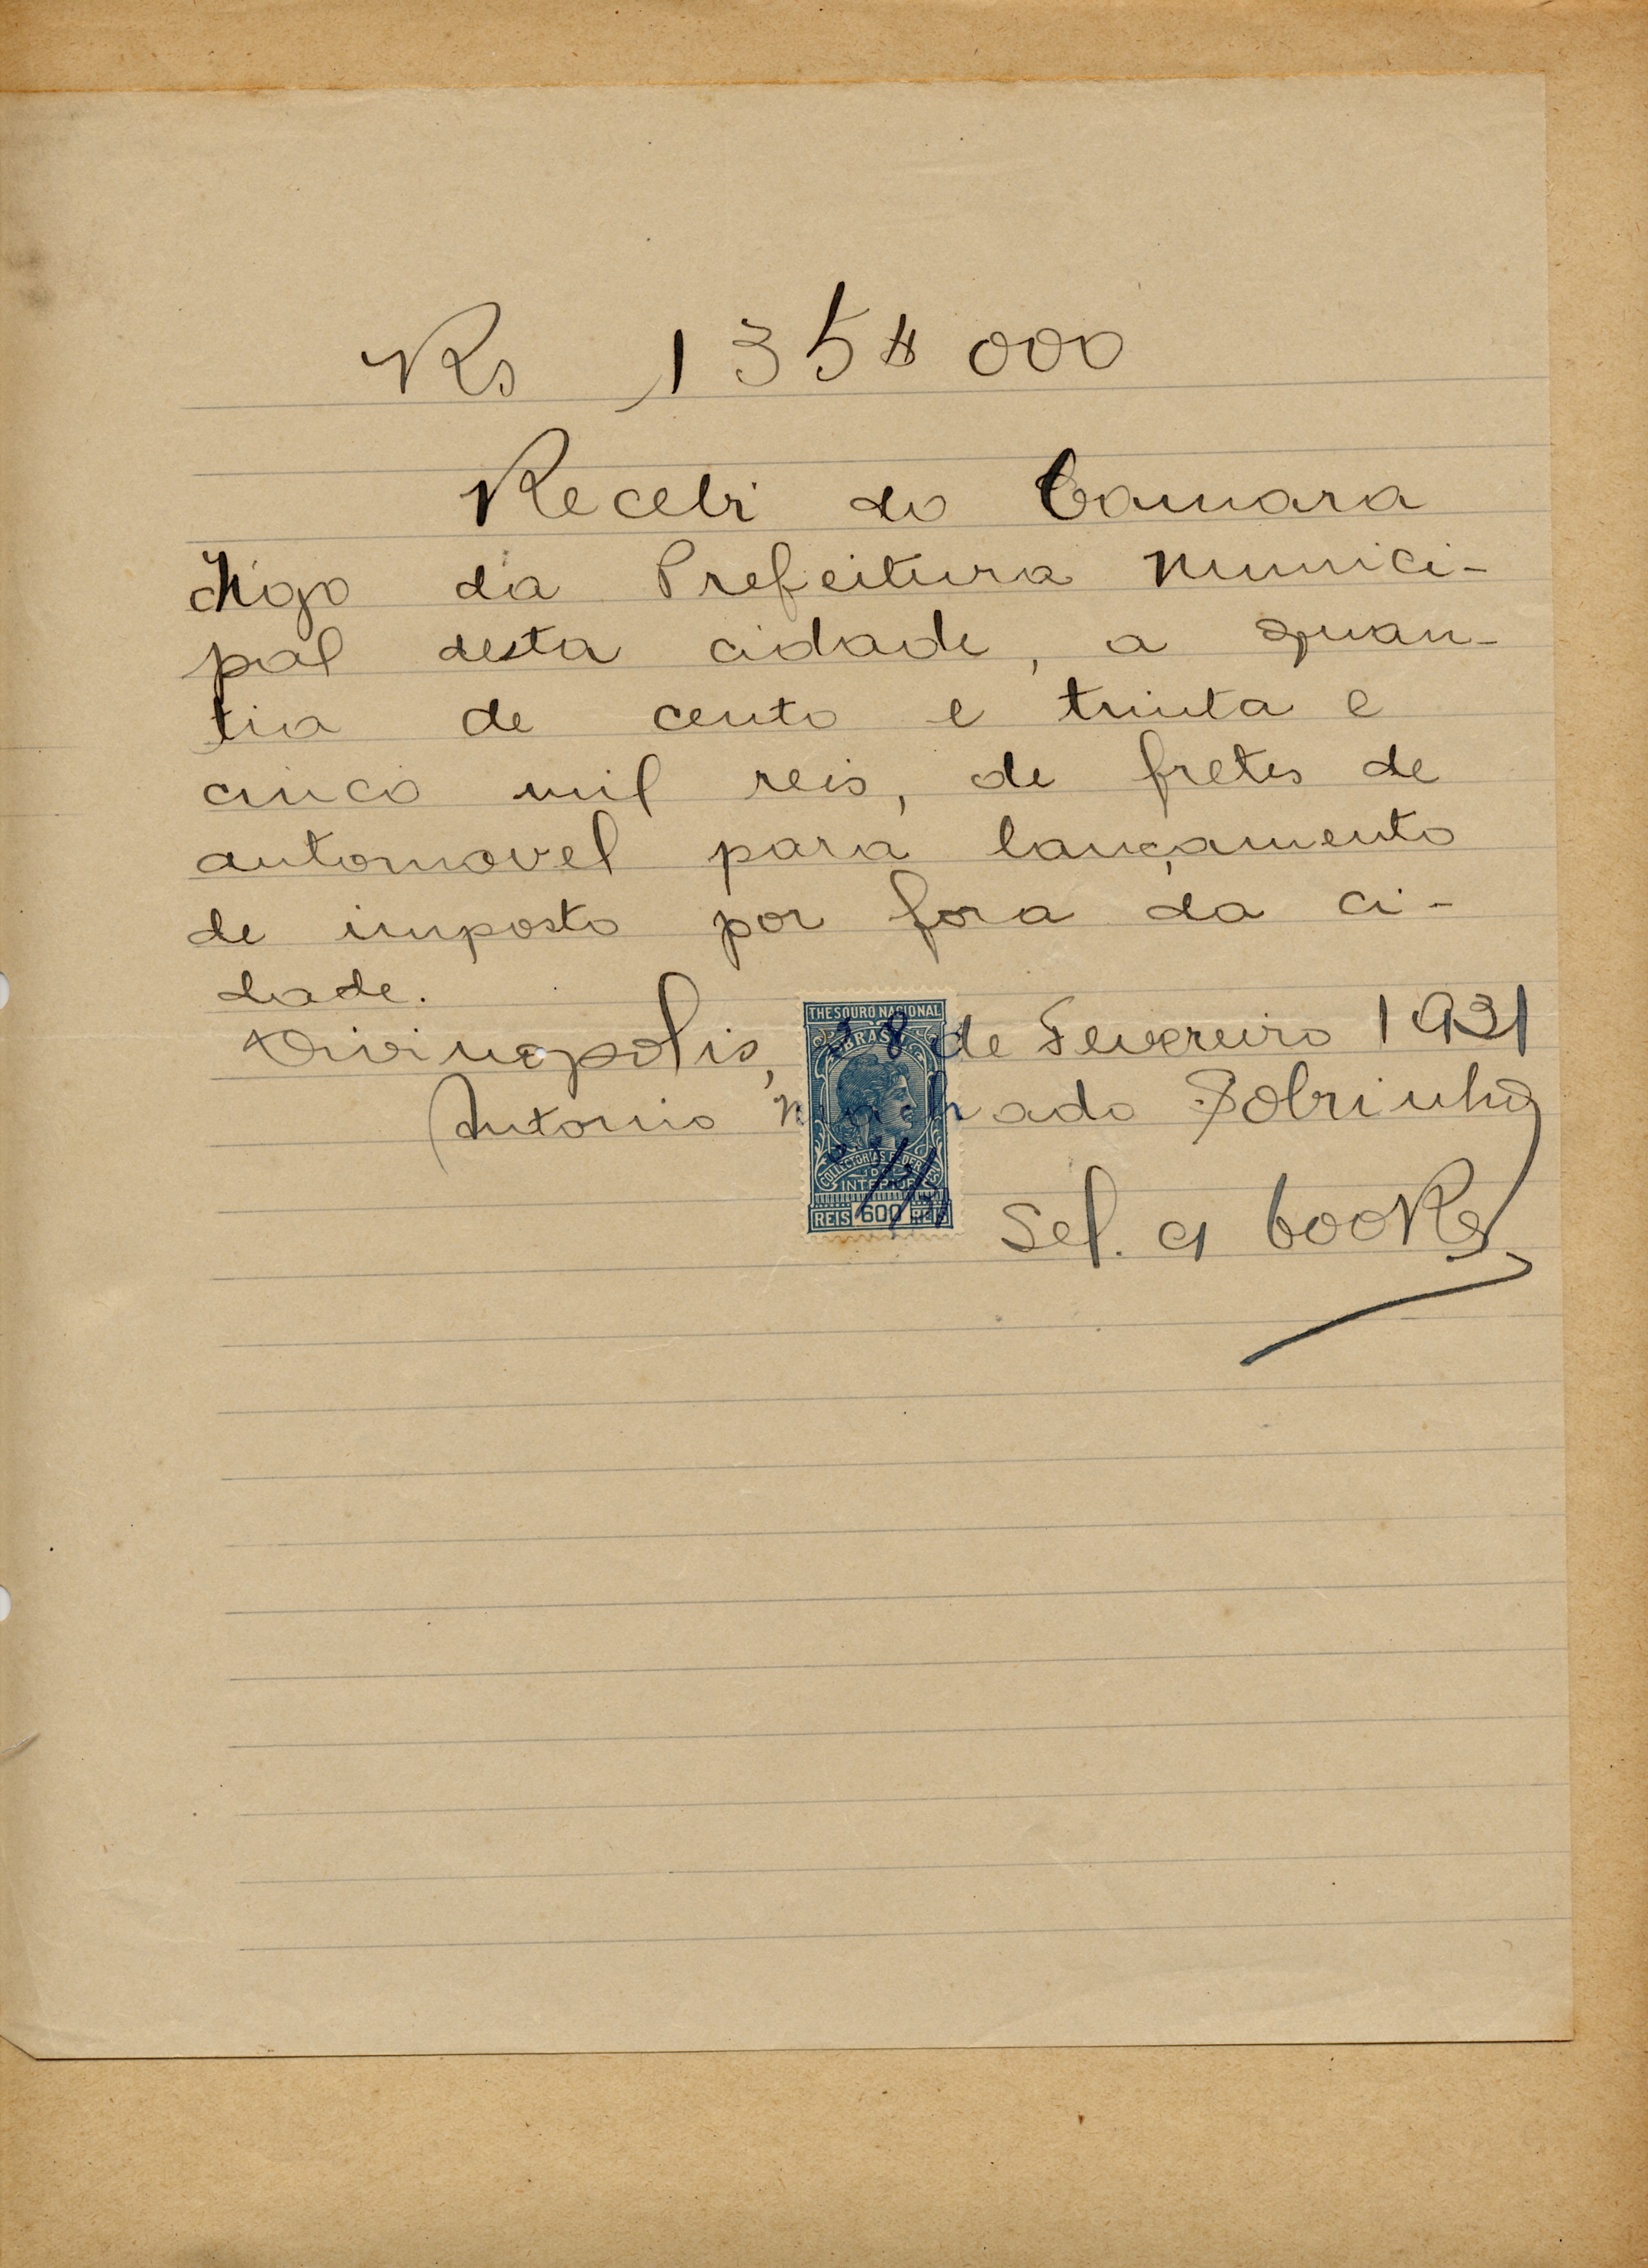 Rs 135$000
Recebi da Camara
digo da Prefeitura Munici-
pal desta cidade, a quan-
tia de cento e trinta e
cinco mil reis, de fretes de
automovel para lançamento
de imposto por fora da ci-
dade.
Divinopolis, 28 de Fevereiro 1931
Antonio Machado Sobrinho
Sel. a 600Rs
THESOURO NACIONAL
BRASIL
COLLECTORIAS FEDERAES
DO
INTERIOR
REIS 600 REIS